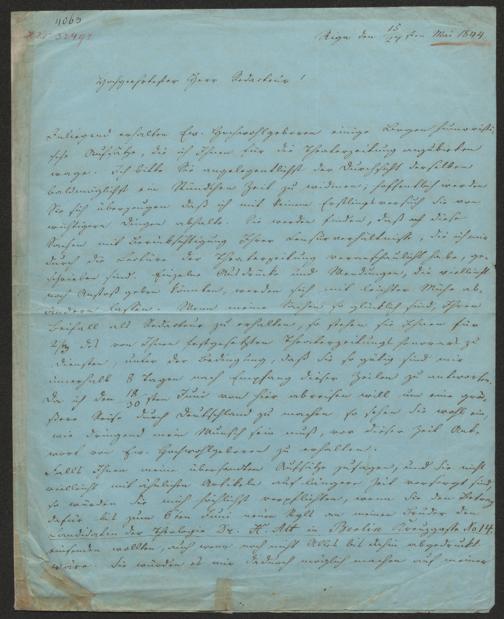 4063
Riga den 15/27sten Mai 1844.
Hochgeehrtester Herr Redacteur!
Inliegend erhalten Ew. Hochwohlgeboren einige Bogen humoristi-
sche Aufsätze, die ich Ihnen für die Theaterzeitung anzubieten
wage. Ich bitte Sie angelegentlichst der Durchsicht derselben
baldmöglichst ein Stündchen Zeit zu widmen, hoffentlich werden
Sie sich überzeugen daß ich mit keinem Erstlingsversuch Sie von
wichtigern Dingen abhalte. Sie werden finden, daß auch diese
Sachen mit Berücksichtigung Ihrer Censurverhältnisse, die ich mir
durch die Lectüre der Theaterzeitung veranschaulicht habe, ge-
schrieben sind. Einzelne Ausdrücke und Wendungen, die vielleicht
noch Anstoß geben könnten, werden sich mit leichter Mühe ab-
ändern lassen. Wenn meine Sachen so glücklich sind, Ihren
Beifall als Redacteur zu erhalten, so stehen sie Ihnen für
2/3 des von Ihnen festgesetzten Theaterzeitungshonorars zu
Diensten, unter der Bedingung, daß Sie so gütig sind mir
innerhalb 8 Tagen nach Empfang dieser Zeilen zu antworten.
Da ich den 18/30sten Juni von hier abreisen will um eine grö-
ßere Reise durch Deutschland zu machen, so sehen Sie wohl ein,
wie dringend mein Wunsch sein muß, vor dieser Zeit Ant-
wort von Ew. Hochwohlgeboren zu erhalten.
Falls Ihnen meine übersandten Aufsätze zusagen, und Sie nicht
vielleicht mit ähnlichen Artikeln auf längere Zeit versorgt sind,
so würden Sie mich höchlichst verpflichten, wenn Sie den Betrag
dafür bis zum 6ten Juni neuen Styls an meinen Bruder den
Candidaten der Theologie Dr. H. Alt in Berlin Kreuzgasse No 14.
einsenden wollten, auch wenn noch nicht Alles bis dahin abgedruckt
wäre. Sie würden es mir dadurch möglich machen auf meiner